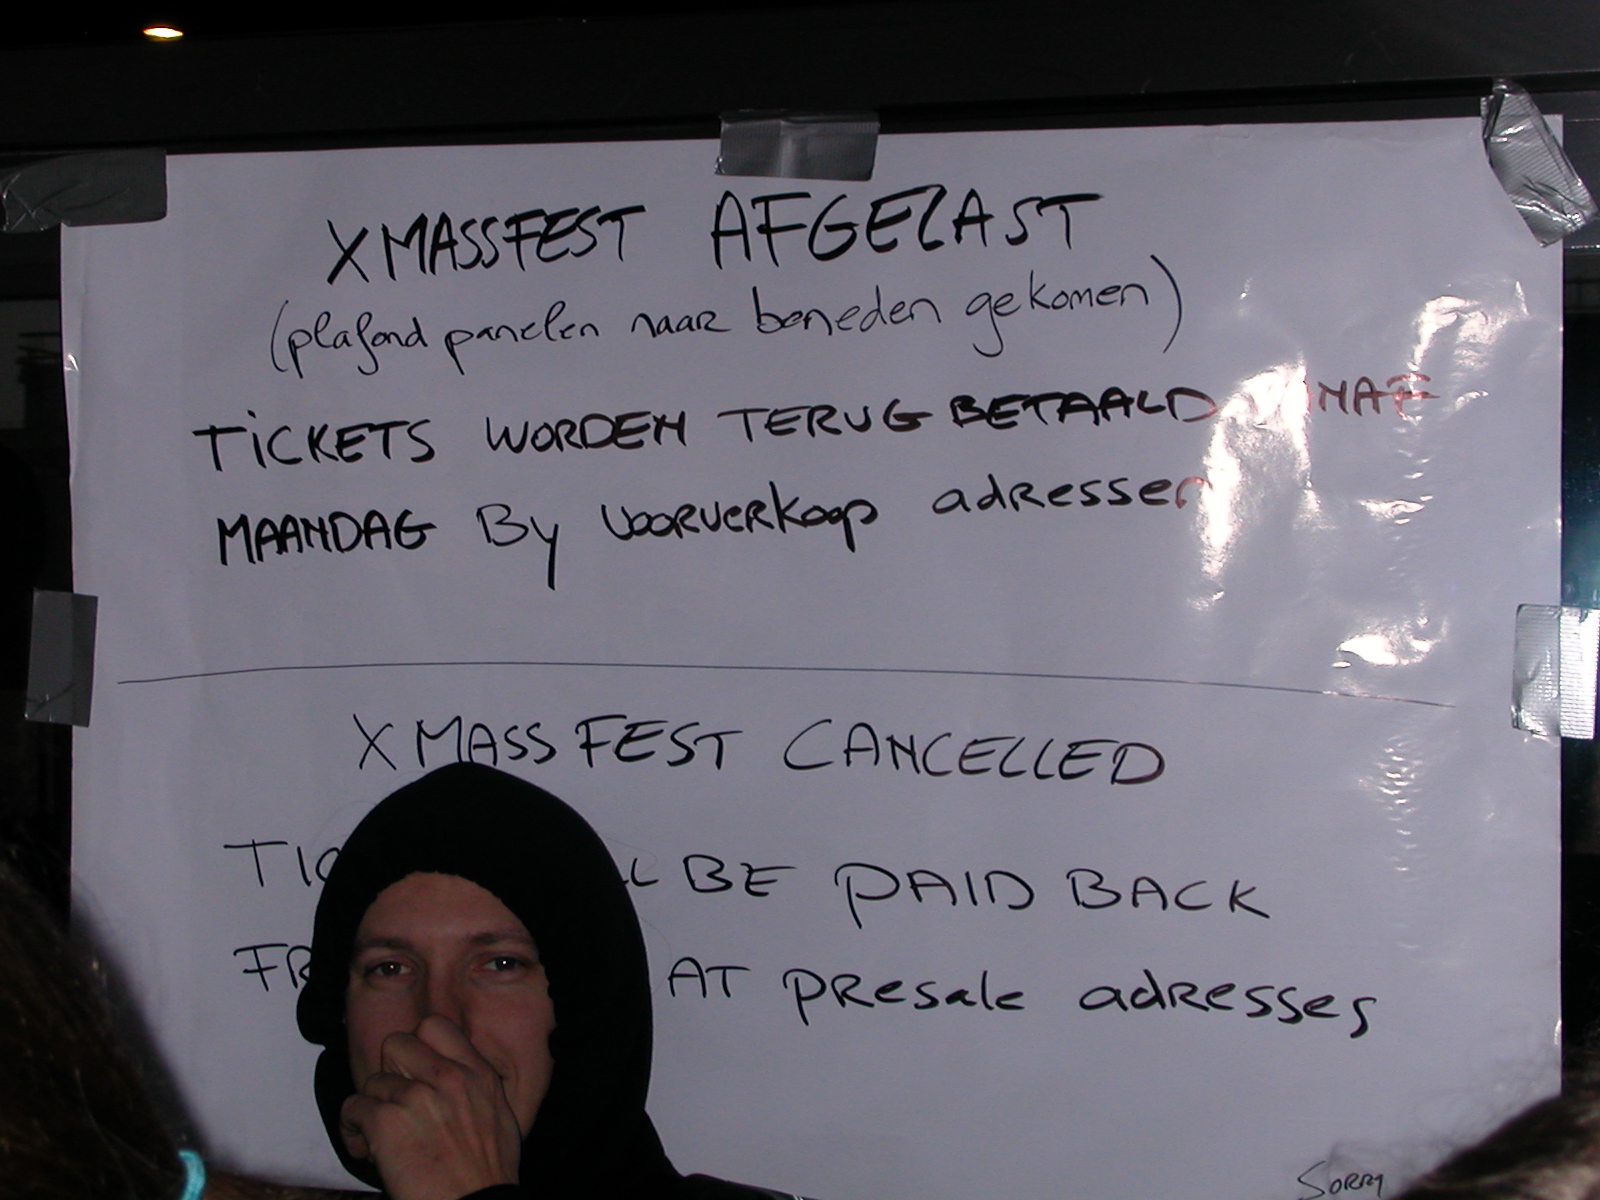 XMASSFEST AFGELAST
(plafond panelen naar beneden gekomen)
TICKETS WORDEN TERUG BETAALD VANAF
MAANDAG By voorverkoop adressen
XMASSFEST CANCELLED
BE PAID BACK
AT presale adresses
SORRY